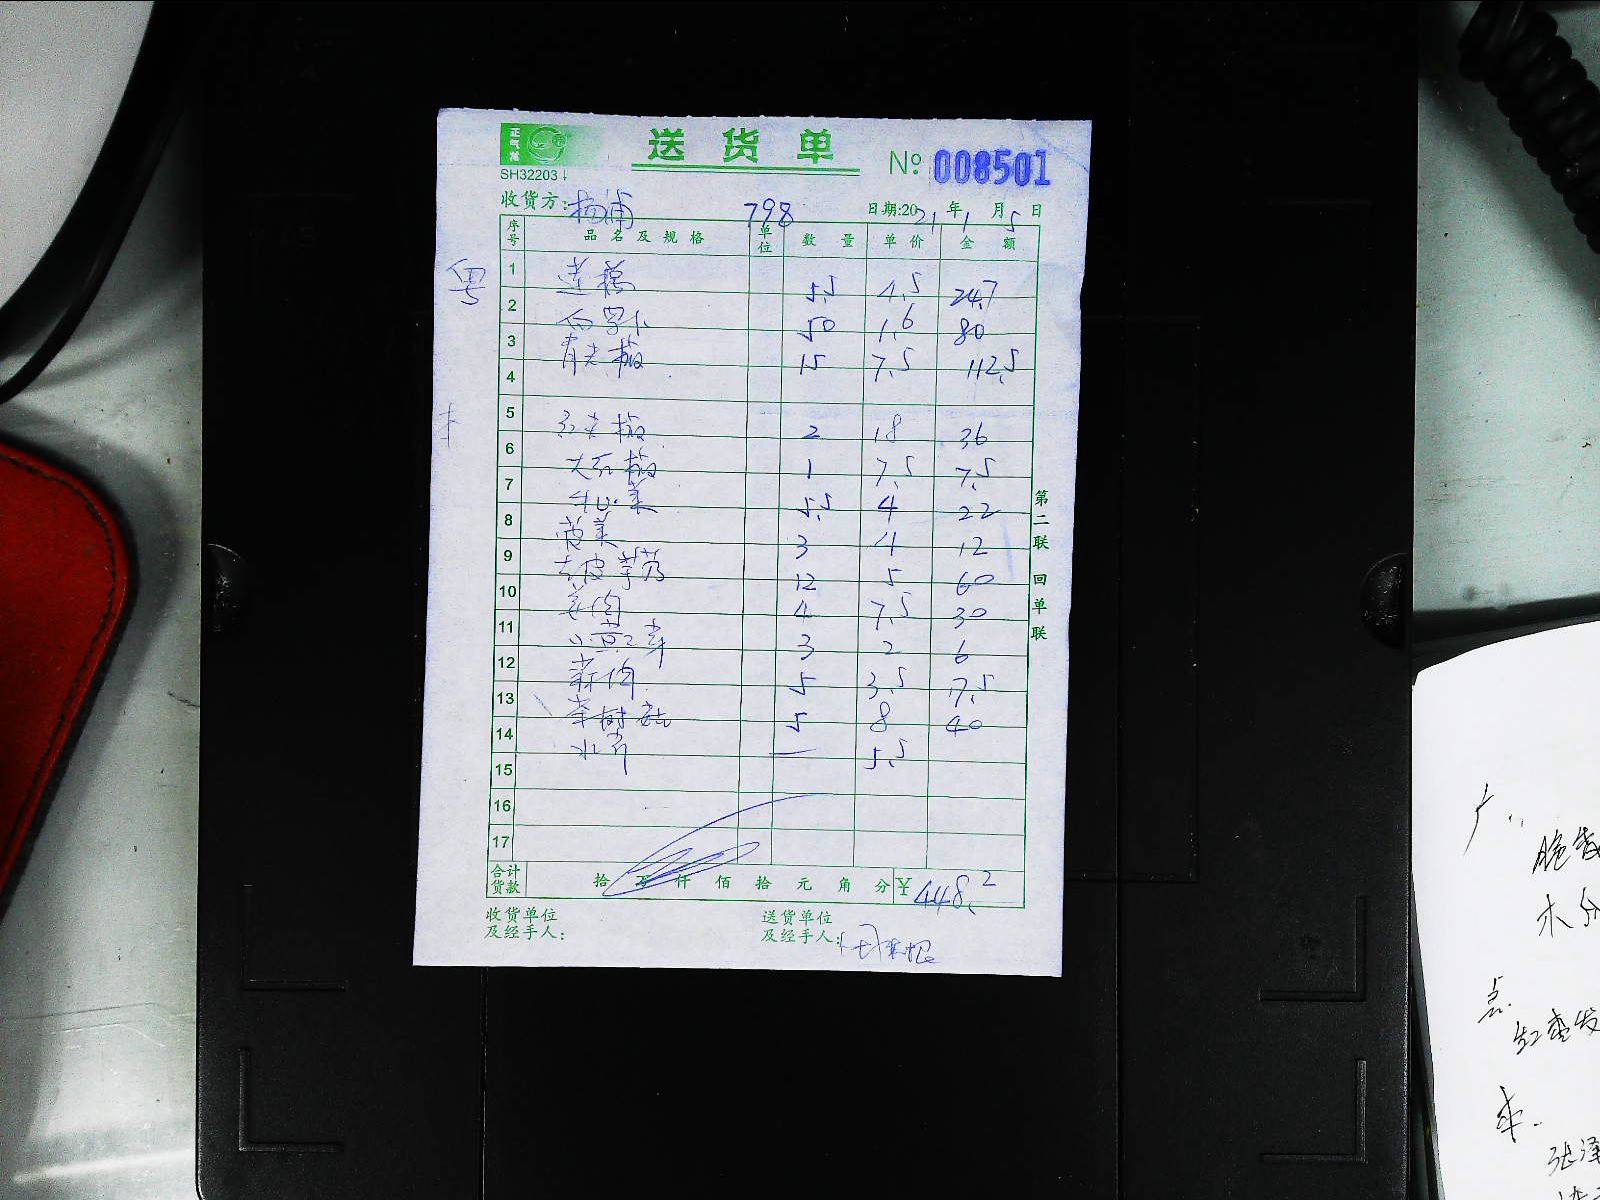 正气葱
送货单
SH32203
№ 008501
收货方: 杨浦 798 日期:2021年1月5日
序号 品名及规格 单位 数量 单价 金额
粤
1 莲藕 5.5 4.5 24.7
2 白萝卜 50 1.6 80
3 青尖椒 15 7.5 112.5
4
5 红尖椒 2 18 36
6 大红椒 1 7.5 7.5
7 5.5 4 22
8 3 4 12
9 去皮芋艿 12 5 60
10 姜肉 4 7.5 30
11 3 2 6
12 5 3.5 17.5
13 茶树菇 5 8 40
14 水芹 — 5.5
15
16
17
合计货款 拾万仟佰拾元角分 ¥448.2
收货单位及经手人:
送货单位及经手人:
第二联 回单联
木